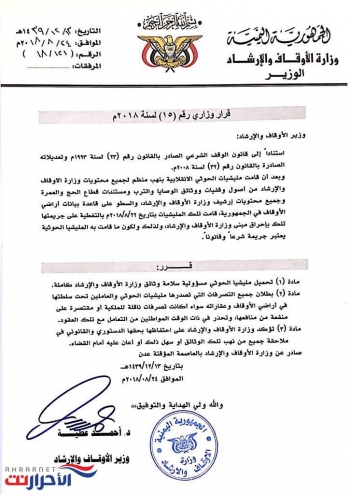 الجمهورية اليمنية
وزارة الأوقاف والإرشاد
الوزير
التاريخ: ١٤٣٩/١٢/١٣هـ
الموافق: ٢٠١٨/٨/٢٤م
الرقم: (١٨/١٢١)
المرفقات:
قرار وزاري رقم (١٥) لسنة ٢٠١٨م
وزير الأوقاف والإرشاد:
استناداً إلى قانون الوقف الشرعي الصادر بالقانون رقم (٢٣) لسنة ١٩٩٣م وتعديلاته
الصادرة بالقانون رقم (٣٢) لسنة ٢٠٠٨م.
وبعد أن قامت مليشيات الحوثي الانقلابية بنهب منظم لجميع محتويات وزارة الاوقاف
والإرشاد من أصول وقفيات ووثائق الوصايا والترب ومستندات قطاع الحج والعمرة
وجميع محتويات إرشيف وزارة الأوقاف والإرشاد، والسطو على قاعدة بيانات أراضي
الأوقاف في الجمهورية، قامت تلك المليشيات بتاريخ ٢٠١٨/٨/٢٢م بالتغطية على جريمتها
تلك بإحراق مبنى وزارة الأوقاف والإرشاد، ولذلك ولكون ما قامت به المليشيا الحوثية
يعتبر جريمة شرعاً وقانوناً.
قـــرر:
مادة (١) تحميل مليشيا الحوثي مسؤولية سلامة وثائق وزارة الأوقاف والإرشاد كاملة.
مادة (٢) بطلان جميع التصرفات التي تصدرها مليشيات الحوثي والعاملين تحت سلطتها
في أراضي الأوقاف وعقاراته سواء أكانت تصرفات ناقلة للملكية او مقتصرة على
منفعة من منافعها، وتحذر في ذات الوقت المواطنين من التعامل مع تلك العقود.
مادة (٣) تؤكد وزارة الأوقاف والإرشاد على احتفاظها بحقها الدستوري والقانوني في
ملاحقة جميع من نهب تلك الوثائق او سهل ذلك أو أعان عليه أمام القضاء.
صادر عن وزارة الأوقاف والإرشاد بالعاصمة المؤقتة عدن
بتاريخ ١٤٣٩/١٢/١٣هـ
الموافق ٢٠١٨/٠٨/٢٤م
والله ولي الهداية والتوفيق،،،
د. أحمــد عطيــة
وزير الأوقاف والإرشاد
الجمهورية اليمنية
وزارة الأوقاف والإرشاد
AHRARNET
الأحرار نت